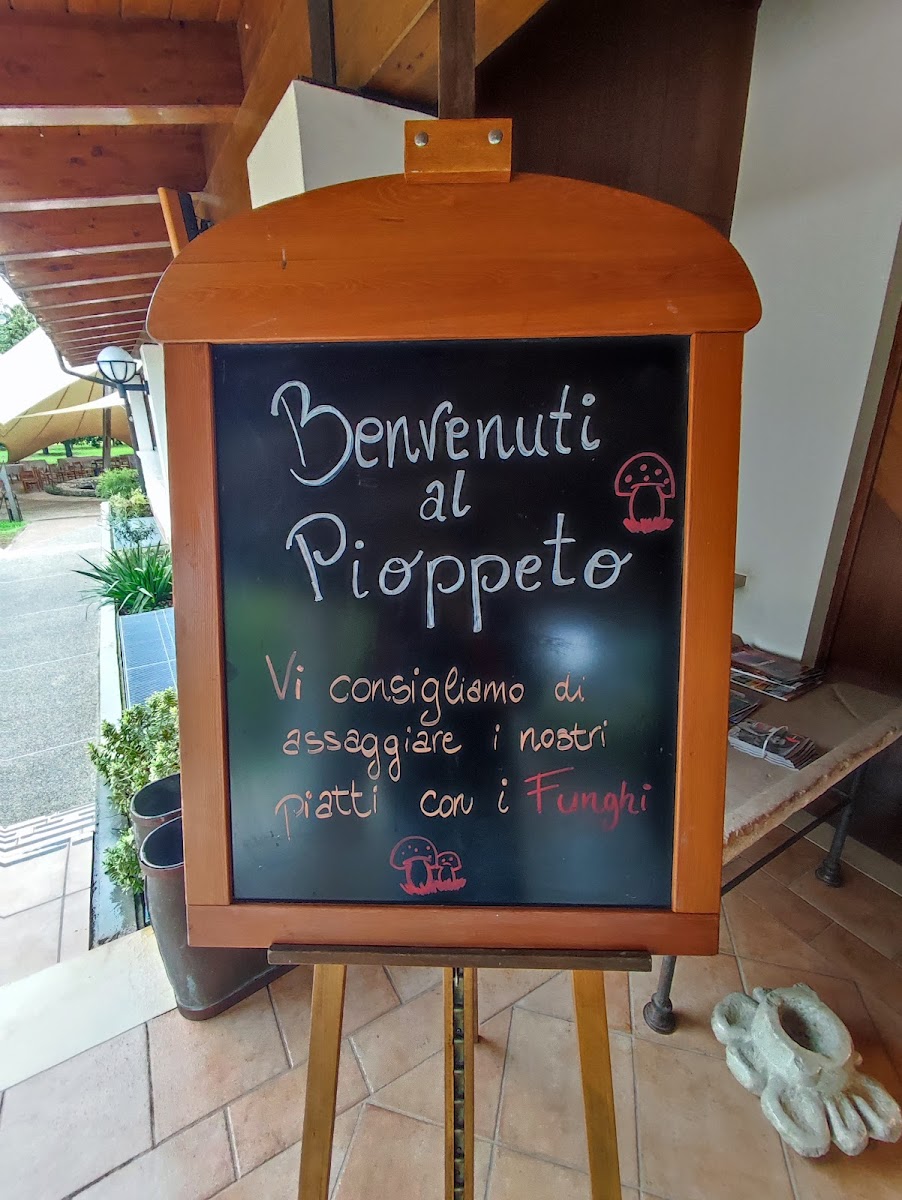 Benvenuti
al
Pioppeto
Vi consigliamo di
assaggiare i nostri
piatti con i Funghi